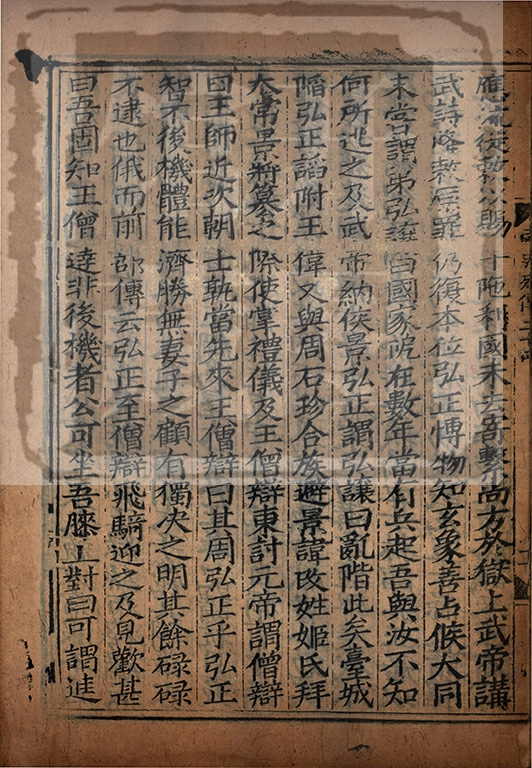 應流徒敕以賜干陁利國未去寄繫尚方於獄上武帝講
武詩降敕原罪仍復本位弘正博物知玄象善占候大同
末嘗謂弟弘讓曰國家阨在數年當有兵起吾與汝不知
何所逃之及武帝納侯景弘正謂弘讓曰亂階此矣臺城
陷弘正諂附王偉又與周石珍合族避景諱改姓姬氏拜
太常景將篡之際使掌禮儀及王僧辯東討元帝謂僧辯
曰王師近次朝士孰當先來王僧辯曰其周弘正乎弘正
智不後機體能濟勝無妻子之顧有獨决之明其餘碌碌
不逮也俄而前部傳云弘正至僧辯飛騎迎之及見歡甚
曰吾固知王僧達非後機者公可坐吾膝上對曰可謂進